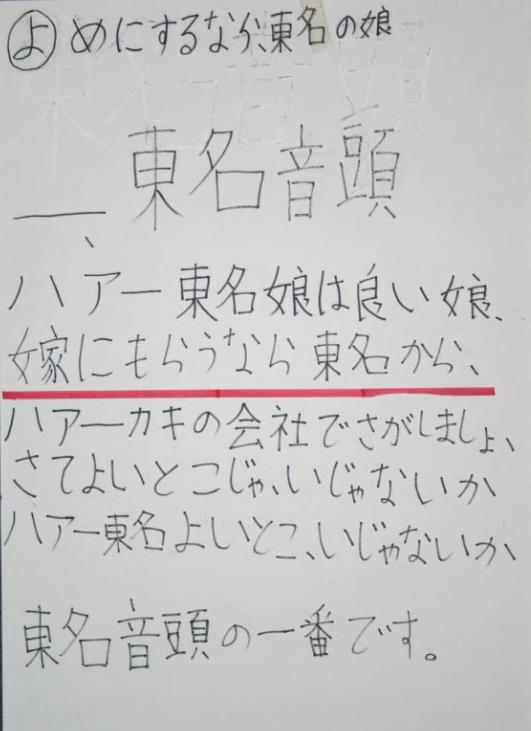 よめにするなら、東名の娘
東名音頭
一、
ハアー東名娘は良い娘、
嫁にもらうなら東名から、
ハアーカキの会社でさがしましょ、
さてよいとこじゃ、いじゃないか
ハアー東名よいとこ、いじゃないか、
東名音頭の一番です。